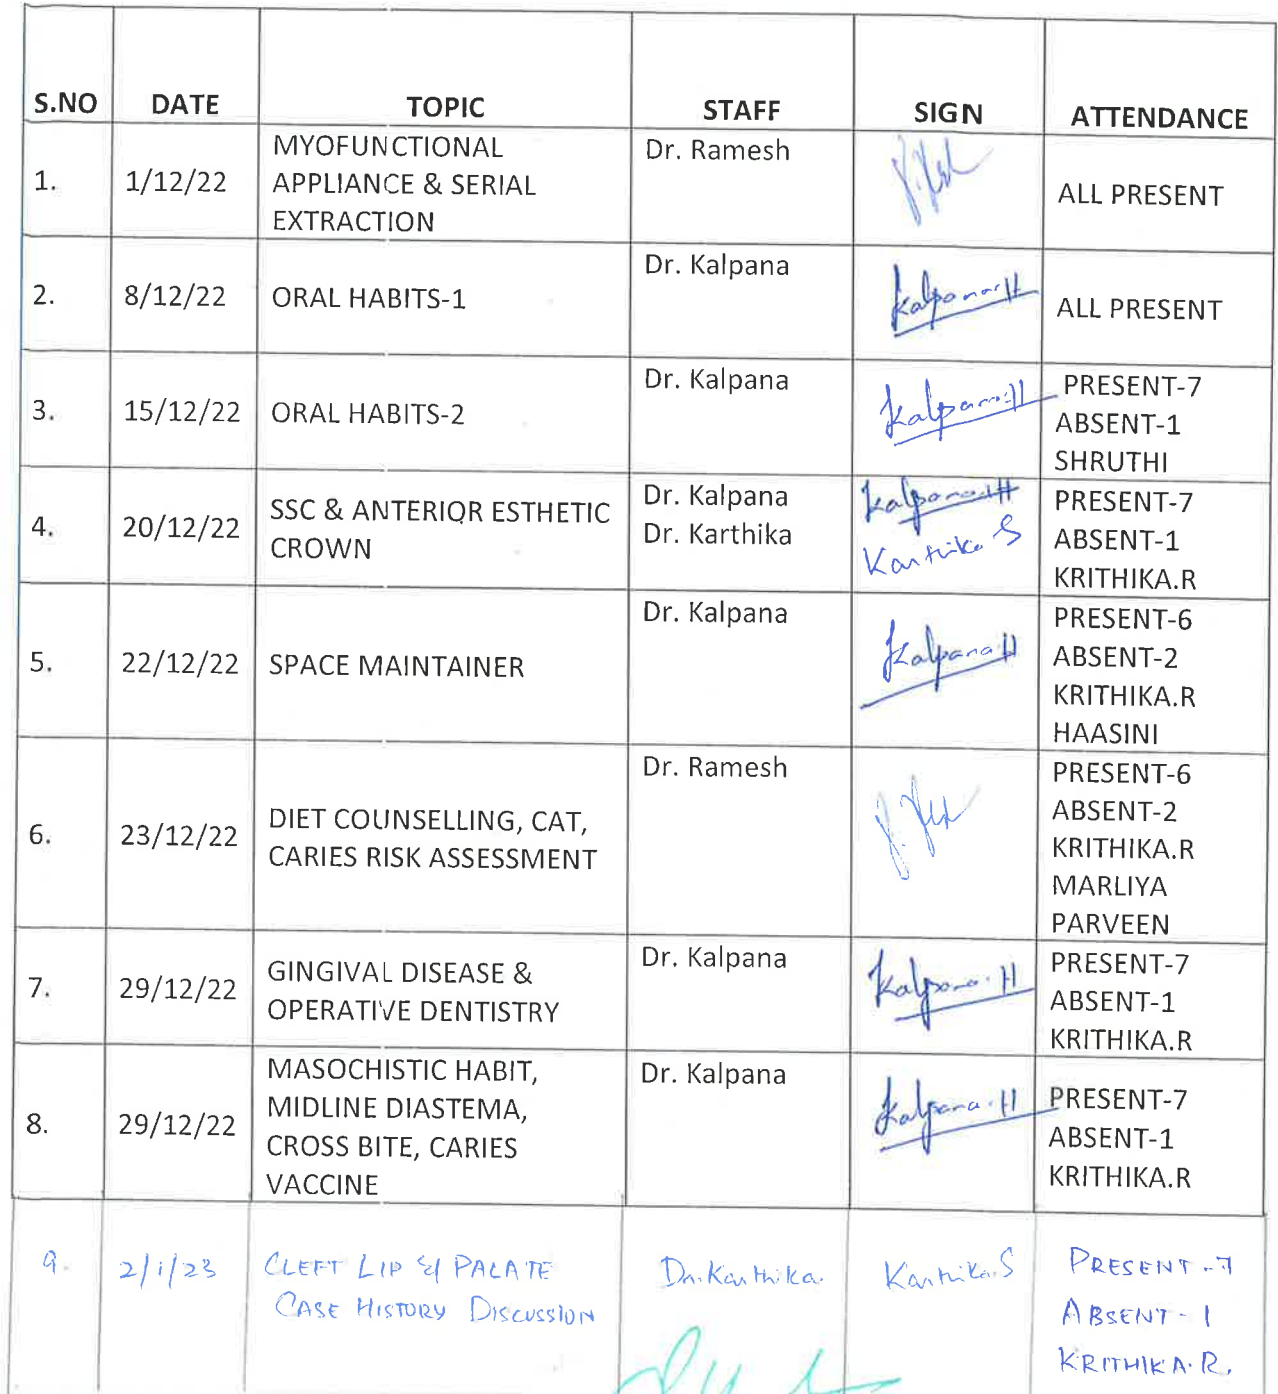 S.NO DATE TOPIC STAFF SIGN ATTENDANCE
1. 1/12/22 MYOFUNCTIONAL APPLIANCE & SERIAL EXTRACTION Dr. Ramesh ALL PRESENT
2. 8/12/22 ORAL HABITS-1 Dr. Kalpana Kalpana.H ALL PRESENT
3. 15/12/22 ORAL HABITS-2 Dr. Kalpana Kalpana.H PRESENT-7
ABSENT-1
SHRUTHI
4. 20/12/22 SSC & ANTERIOR ESTHETIC
CROWN
Dr. Kalpana
Dr. Karthika
Kalpana.H
Karthika S
PRESENT-7
ABSENT-1
KRITHIKA.R
5. 22/12/22 SPACE MAINTAINER Dr. Kalpana Kalpana.H PRESENT-6
ABSENT-2
KRITHIKA.R
HAASINI
6. 23/12/22 DIET COUNSELLING, CAT,
CARIES RISK ASSESSMENT
Dr. Ramesh
PRESENT-6
ABSENT-2
KRITHIKA.R
MARLIYA
PARVEEN
7. 29/12/22 GINGIVAL DISEASE &
OPERATIVE DENTISTRY
Dr. Kalpana
Kalpana.H
PRESENT-7
ABSENT-1
KRITHIKA.R
8. 29/12/22 MASOCHISTIC HABIT,
MIDLINE DIASTEMA,
CROSS BITE, CARIES
VACCINE
Dr. Kalpana
Kalpana.H
PRESENT-7
ABSENT-1
KRITHIKA.R
9. 2/1/23 CLEFT LIP & PALATE
CASE HISTORY DISCUSSION
Dr. Karthika.
Karthika.S
PRESENT-7
ABSENT-1
KRITHIKA.R.